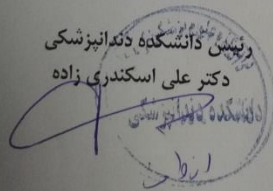 رییس دانشکده دندانپزشکی
دکتر علی اسکندری زاده
دانشکده دندانپزشکی